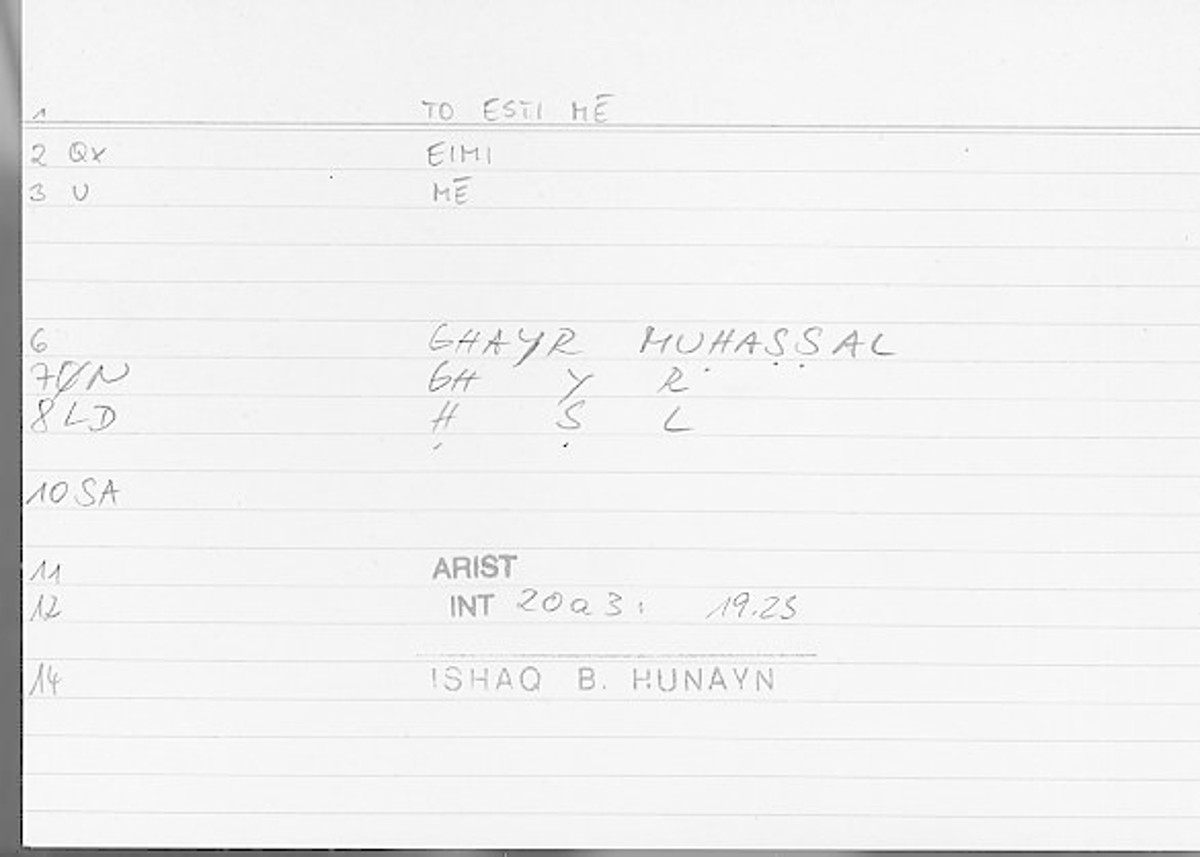 1 TO ESTI MĒ
2 Qx EIMI
3 U MĒ
6 GHAYR MUḤAṢṢAL
7 ØN GH Y R
8 LD Ḥ Ṣ L
10 SA
11 ARIST
12 INT 20a3: 19.23
14 ISHAQ B. HUNAYN